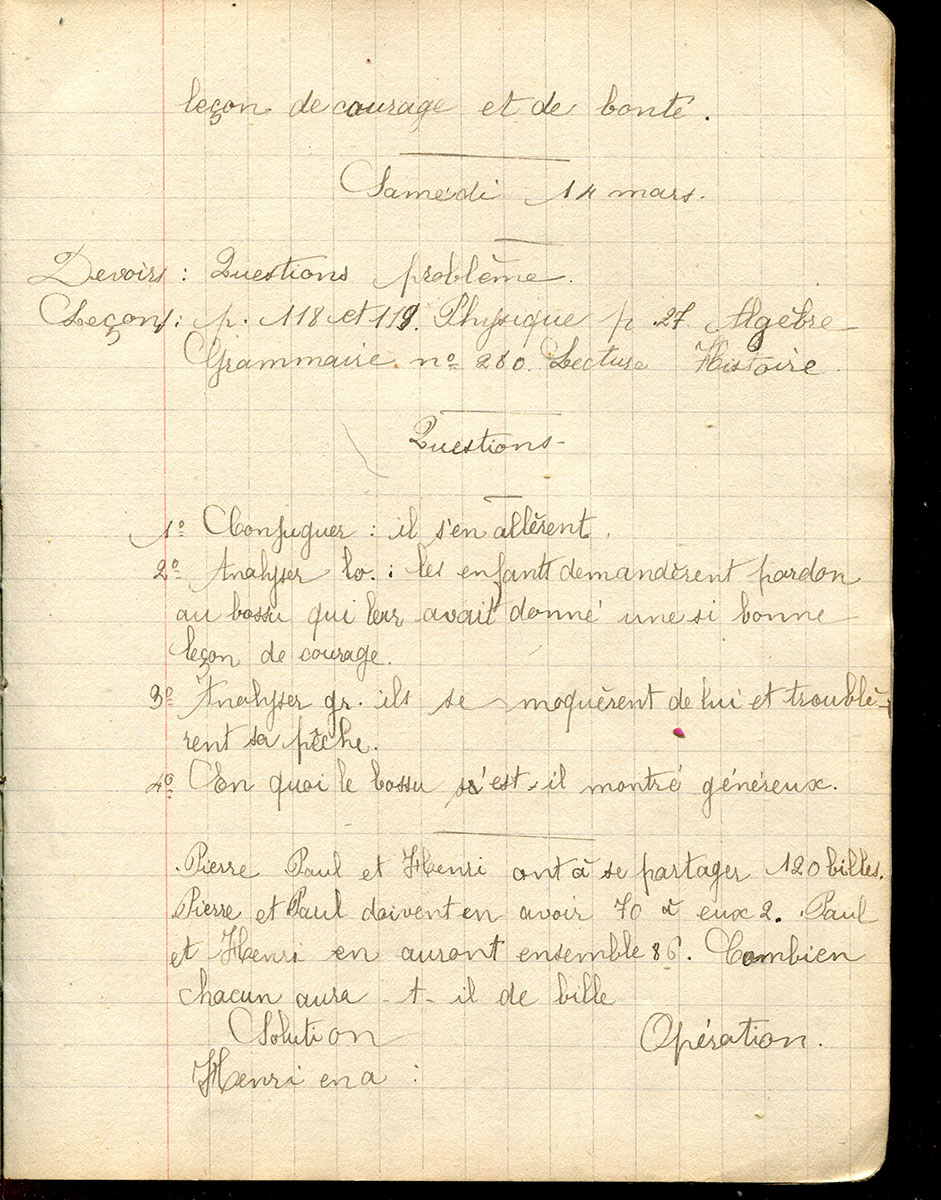 leçon de courage et de bonté.
Samedi 14 mars.
Devoirs : Questions problème.
Leçons : p. 118 et 119. Physique p 27 Algèbre
Grammaire nº 280. Lecture Histoire
Questions
1º Conjuguer : il s'en allèrent.
2º Analyser lo. : les enfants demandèrent pardon
au bossu qui leur avait donné une si bonne
leçon de courage.
3º Analyser gr. ils se moquèrent de lui et troublè-
rent sa pêche.
4º En quoi le bossu s'est-il montré généreux.
Pierre Paul et Henri ont à se partager 120 billes.
Pierre et Paul doivent en avoir 70 à eux 2. Paul
et Henri en auront ensemble 86. Combien
chacun aura-t-il de bille
Solution Opération.
Henri en a :